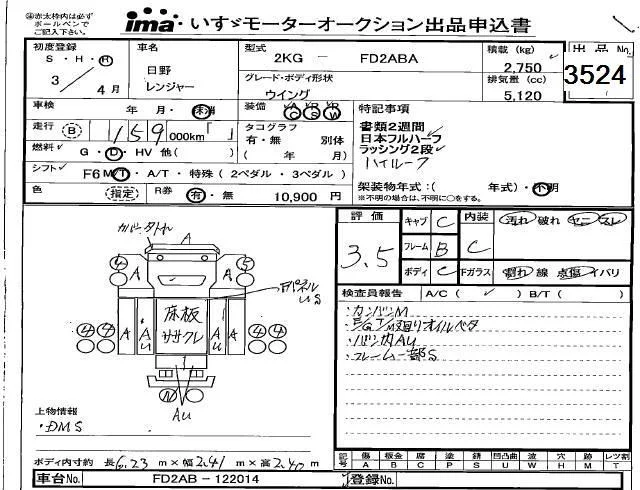 ㊟赤太枠内は必ず
ボールペンで
ご記入下さい。
ima いすゞモーターオークション出品申込書
初度登録 S・H・R
3年4月
車名
日野
レンジャー
型式
2KG － FD2ABA
グレード・ボディ形状
ウイング
積載 (kg)
2,750
排気量 (cc)
5,120
出品No.
3524
車検 年・月・抹消
装備 A/C P/S P/W
走行 B 159 000km「 」
タコグラフ
有・無 別体
( 年 月)
燃料 G・D・HV 他( )
シフト F6 M/T・A/T・特殊 (2ペダル・3ペダル)
色 (指定) R券 有・無 10,900 円
特記事項
書類2週間
日本フルハーフ
ラッシング2段
ハイルーフ
架装物年式:( 年式)・不明
※不明の場合は、不明に○をする。
評価
3.5
キャブ C
フレーム B
ボディ C
内装 C 汚れ 破れ ヤニ スレ
Fガラス 割れ 線 点傷 イバリ
検査員報告 A/C ( ✓ ) B/T ( )
・カンバンM
・E/G T/M廻りオイルベタ
・バン内AU
・フレーム一部S
カバー欠トれ
A
4 A A 5
FパネルUS
4 4 A AU 床板ササクレ AU A 4 4
AU
上物情報
・DMS
ボディ内寸約 長6.23m×幅2.41m×高2.40m
記号 傷A 板金B 腐C 塗P 錆S 凹凸曲U 波W 穴H 跡M レツ割T
車台No. FD2AB－122014 登録No.